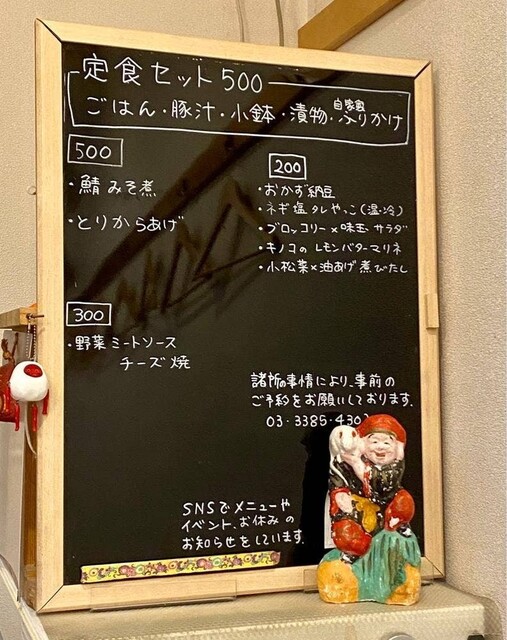 定食セット 500
ごはん・豚汁・小鉢・漬物・自家製ふりかけ
500
・鯖みそ煮
・とりからあげ
200
・おかず納豆
・ネギ塩タレやっこ(温・冷)
・ブロッコリー×味玉 サラダ
・キノコの レモンバターマリネ
・小松菜×油あげ煮びたし
300
・野菜ミートソース
チーズ焼
諸所の事情により、事前の
ご予約をお願いしております。
03・3385・430
SNSでメニューや
イベント、お休みの
お知らせをしています。